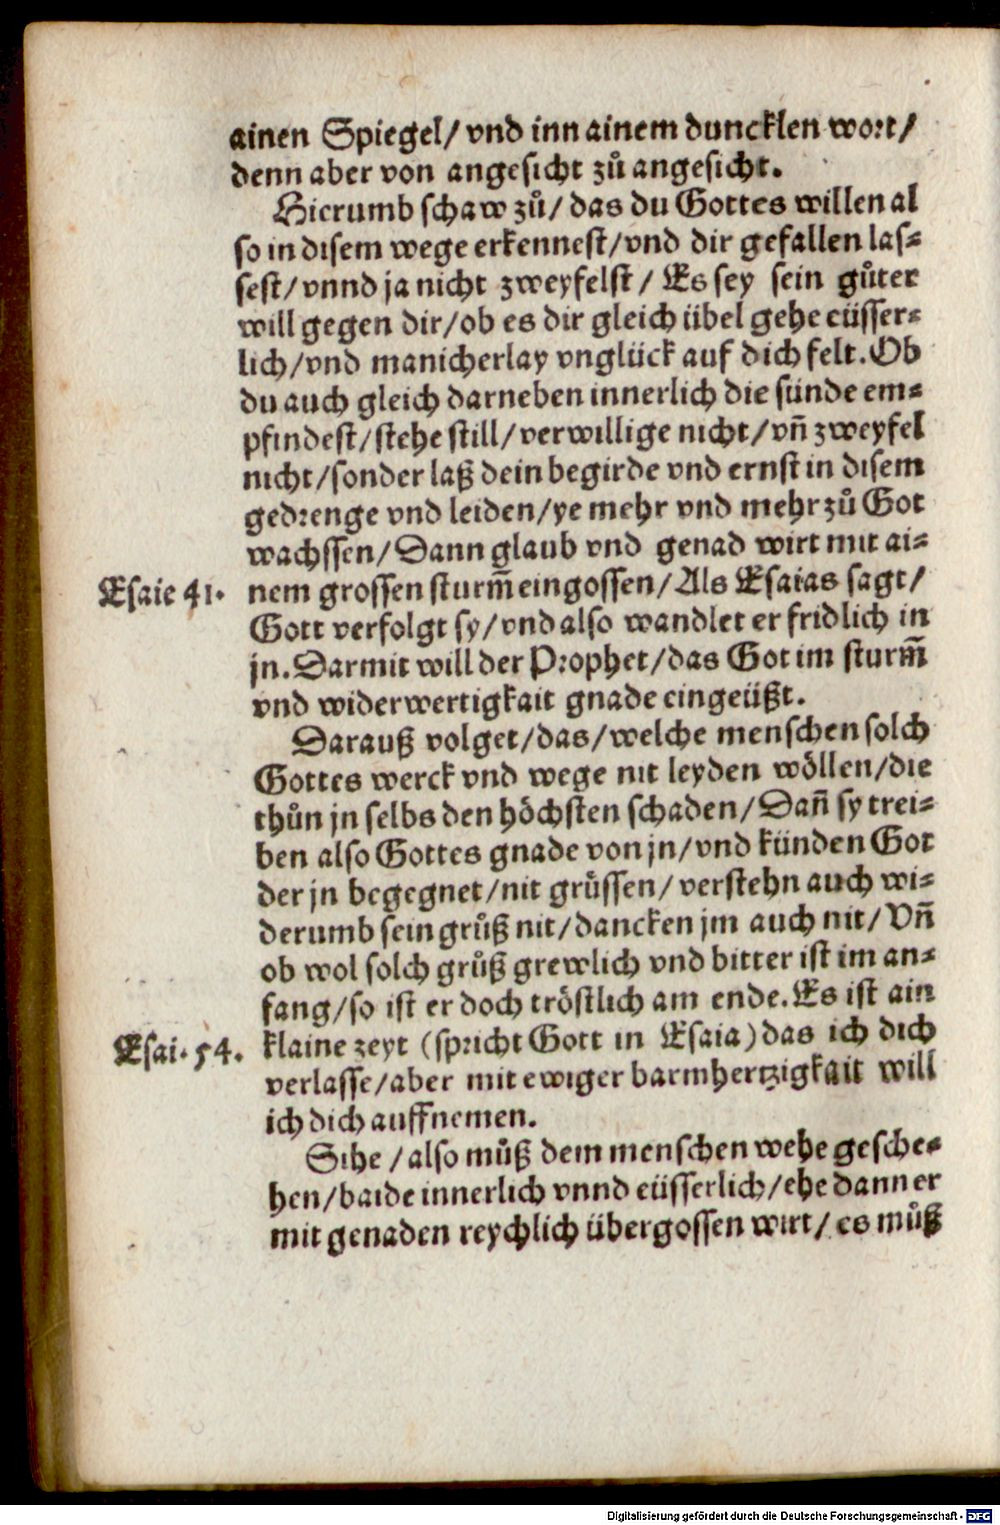 ainen Spiegel/ vnd inn ainem duncklen wort/
denn aber von angesicht zů angesicht.
Hierumb schaw zů/ das du Gottes willen al
so in disem wege erkennest/vnd dir gefallen las⸗
sest/ vnnd ja nicht zweyfelst/ Es sey sein gůter
will gegen dir/ob es dir gleich übel gehe eüsser⸗
lich/vnd manicherlay vnglück auf dich felt. Ob
du auch gleich darneben innerlich die sünde em⸗
pfindest/stehe still/verwillige nicht/vñ zweyfel
nicht/sonder laß dein begirde vnd ernst in disem
gedrenge vnd leiden/ye mehr vnd mehr zů Got
wachssen/Dann glaub vnd genad wirt mit ai⸗
Esaie 41. nem grossen sturm̃ eingossen/Als Esaias sagt/
Gott verfolgt sy/vnd also wandlet er fridlich in
jn. Darmit will der Prophet/das Got im sturm̃
vnd widerwertigkait gnade eingeüßt.
Darauß volget/das/welche menschen solch
Gottes werck vnd wege nit leyden wöllen/die
thůn jn selbs den höchsten schaden/Dañ sy trei⸗
ben also Gottes gnade von jn/vnd künden Got
der jn begegnet/nit grüssen/verstehn auch wi⸗
derumb sein grůß nit/dancken jm auch nit/Vñ
ob wol solch grůß grewlich vnd bitter ist im an⸗
fang/so ist er doch tröstlich am ende. Es ist ain
Esai. 54. klaine zeyt (spricht Gott in Esaia) das ich dich
verlasse/aber mit ewiger barmhertzigkait will
ich dich auffnemen.
Sihe/also můß dem menschen wehe gesche⸗
hen/baide innerlich vnnd eüsserlich/ehe dann er
mit genaden reychlich übergossen wirt/es můß
Digitalisierung gefördert durch die Deutsche Forschungsgemeinschaft - DFG